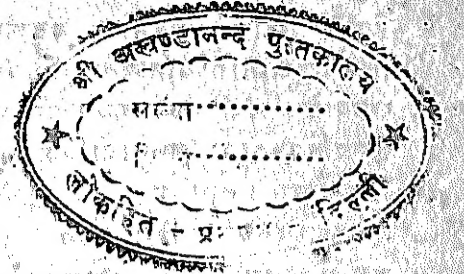 श्री अखण्डानन्द पुस्तकालय
संख्या............
लोकहित - प्र